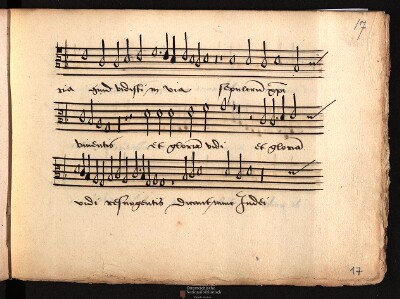 17
ria quid vidisti in via sepulcrum xpi
viventis et gloriā vidi et gloriā
vidi resurgentis Dicant nunc Judei
17
Österreichische
Nationalbibliothek